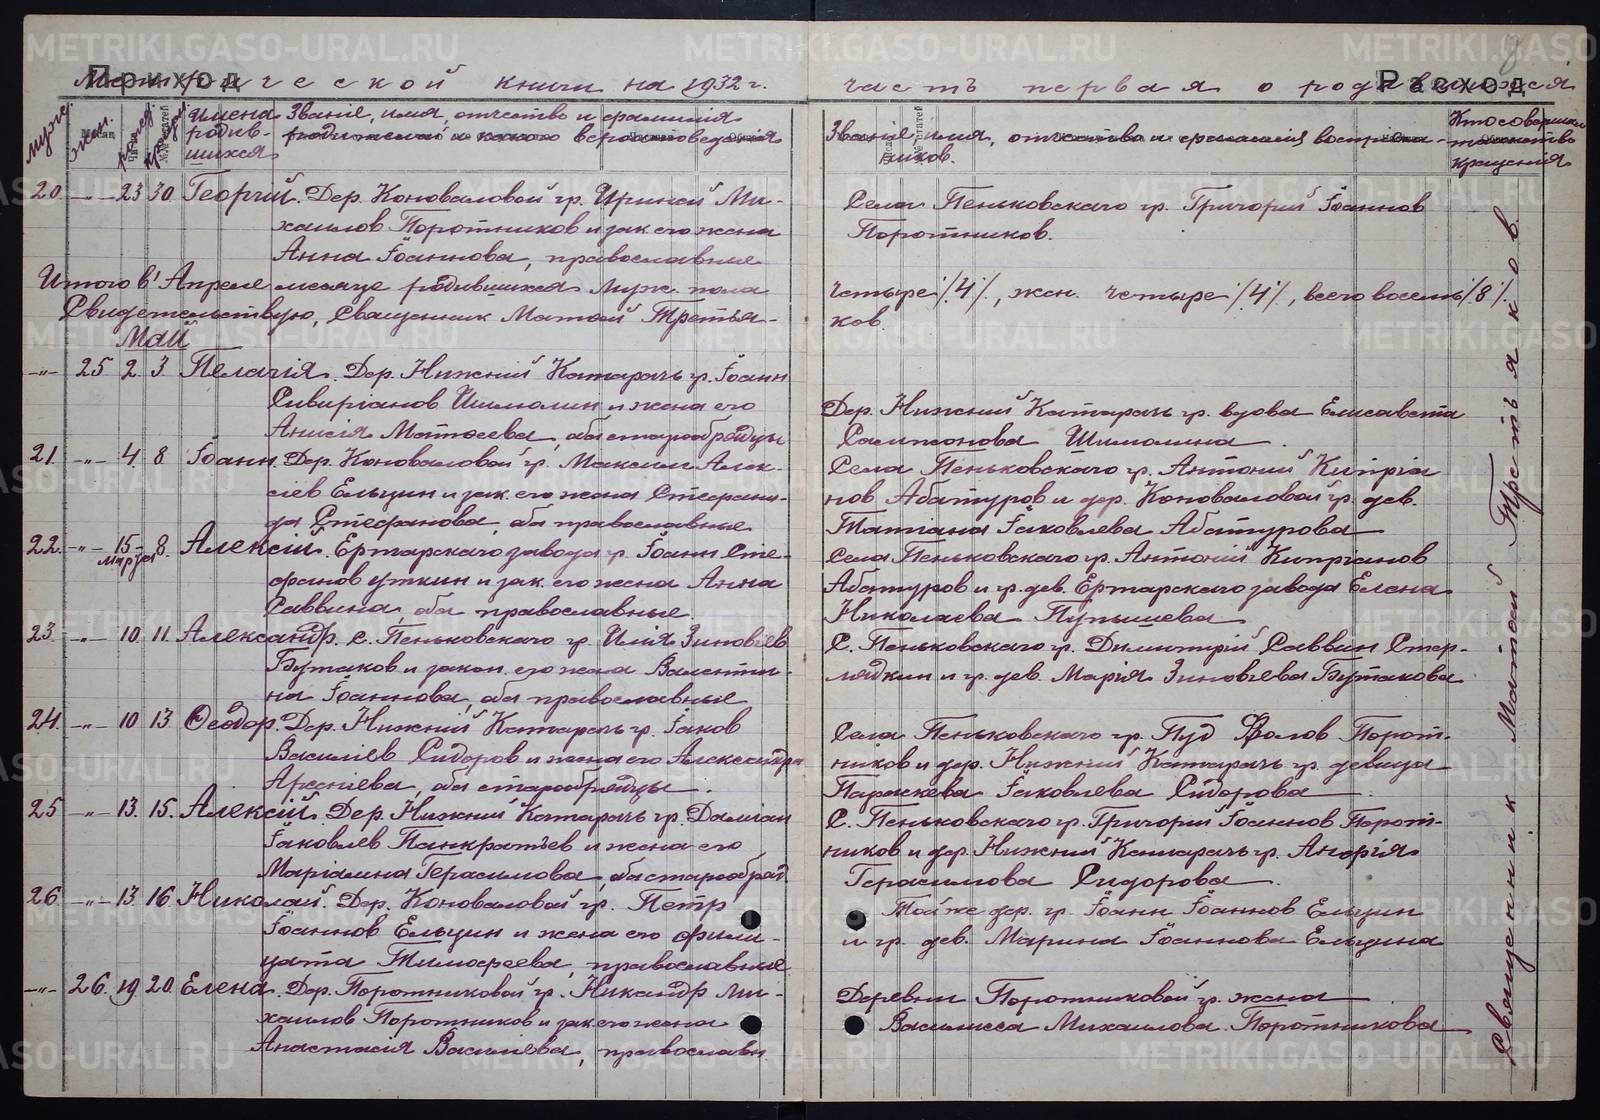 Приход
Расход
Метрической книги на 1932 г.
часть первая о родившихся
муж.
жен.
Имена родив-
шихся
Званіе, имя, отчество и фамилия
родителей и какого вероисповедания
Званіе, имя, отчество и фамилия восприем-
ников.
Кто совершал
таинство
крещения
20. -"- 23 30 Георгий. Дер. Коноваловой гр. Ириней Ми-
хаилов Поротников и зак. его жена
Анна Іоаннова, православные
Села Пеньковскаго гр. Григорий Іоаннов
Поротников.
Итого в Апреле месяце родившихся муж. пола
четыре /4/, жен. четыре /4/, всего восемь /8/.
Свидетельствую, Священник Матвей Третья-
ков.
Май
-"- 25 2 3 Пелагия. Дер. Нижний Катарач гр. Іоанн
Сивиріанов Шимолин и жена его
Анисія Матвеева, оба старообрядцы
Дер. Нижний Катарач гр. вдова Елисавета
Шимолина.
21. -"- 4 8 Іоанн. Дер. Коноваловой гр. Максим Алек-
сіев Ельцин и зак. его жена Стефани-
да Стефанова, оба православные
Села Пеньковскаго гр. Антоний Кипріа
нов Абатуров и дер. Коноваловой гр. дев.
Татиана Іаковлева Абатурова
22. -"- 15 марта 8. Алексій. Ертарскаго завода гр. Іоанн Сте-
фанов Уткин и зак. его жена Анна
Саввина, оба православные
Села Пеньковскаго гр. Антоний Кипріанов
Абатуров и гр. дев. Ертарскаго завода Елена
Николаева Пупышева
23. -"- 10 11. Александр. с. Пеньковскаго гр. Илія Зиновіев
Бутаков и закон. его жена Валенти-
на Іоаннова, оба православные
С. Пеньковскаго гр. Димитрий Саввин Стер-
лядкин и гр. дев. Марія Зиновьева Бутакова
24. -"- 10 13. Феодор. Дер. Нижний Катарач гр. Іаков
Василіев Сидоров и жена его Александра
Арсеніева, оба старообрядцы.
Села Пеньковскаго гр. Пуд Фолов Порот-
ников и дер. Нижний Катарач гр. девица
Параскева Іаковлева Сидорова
25 -"- 13. 15. Алексій. Дер. Нижний Катарач гр. Даміан
Іаковлев Панкратьев и жена его
Маріамна Герасимова, оба старообряд
С. Пеньковскаго гр. Григорий Іоаннов Порот-
ников и дер. Нижний Катарач гр.
Герасимова Сидорова
26 -"- 13. 16. Николай. Дер. Коноваловой гр. Петр
Іоаннов Ельцин и жена его Фили-
цата Тимофеева, православные
Той же дер. гр. Іоанн Іоаннов Ельцин
и гр. дев. Марина Іоаннова Ельцина
-"- 26. 19. 20. Елена. Дер. Поротниковой гр. Никандр Ми-
хаилов Поротников и зак. его жена
Анастасія Василиева, православн.
Деревни Поротниковой гр. жена
Василисса Михаилова Поротникова
Священник Матвей Третьяков.
METRIKI.GASO-URAL.RU